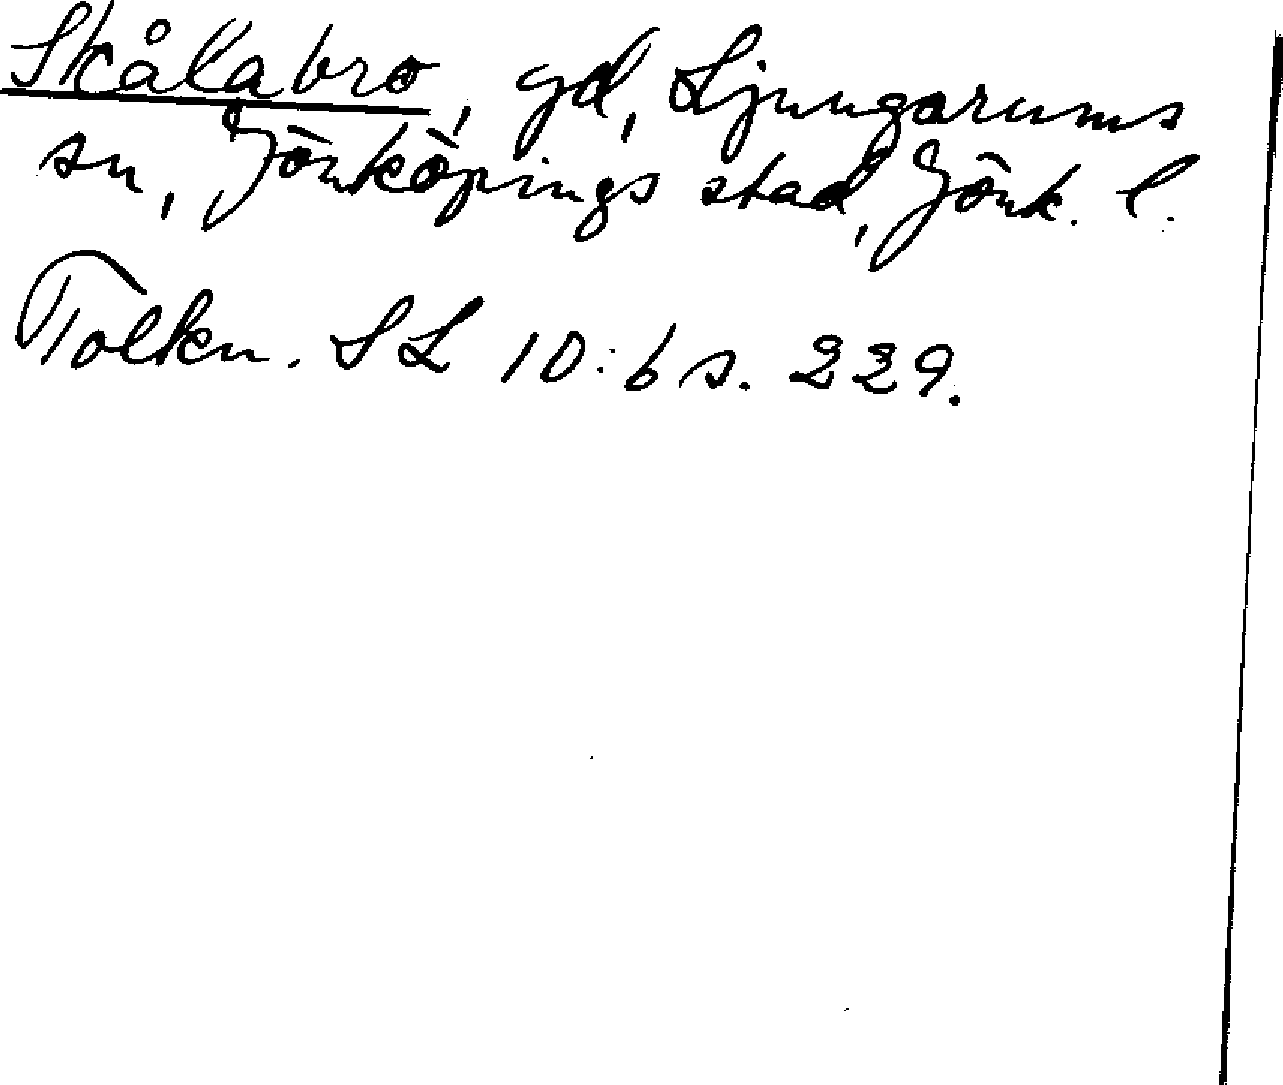 Skålabro, gd, Ljungarums
sn, Jönköpings stad, Jönk. l.
Tolkn. SL 10:6 s. 229.